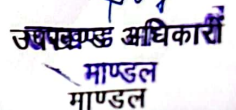 उपखण्ड अधिकारी
माण्डल
माण्डल